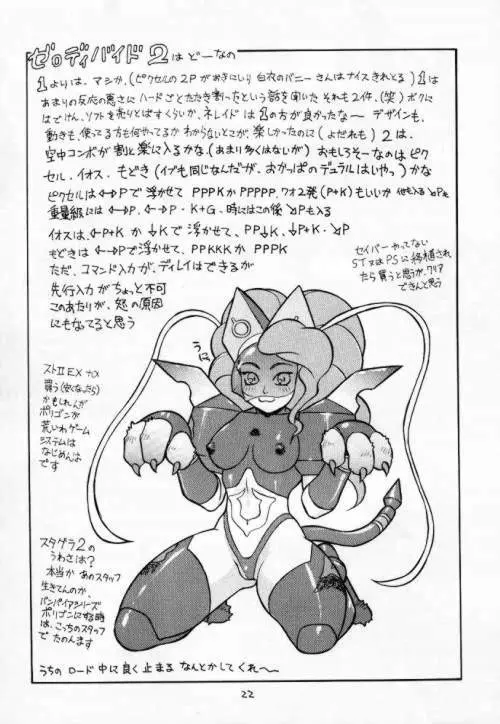 ゼロディバイド2はどーなの
1よりは、マシか、(ピクセルの2Pがおきにいり 白衣のバニーさんはナイスきれとる) 1は
あまりの反応の悪さにハードごとたたき割ったという話を聞いた それも2件、(笑) ボクに
はでけん、ソフトを売りとばすくらいか、ネレイドは1の方が良かったな〜 デザインも、
動きも、使ってる方も何やってるかわからないとこが、楽しかったのに(よだれも) 2は、
空中コンボが割と楽に入るかな、(あまり多くはないが) おもしろそーなのはピク
セル、イオス、もどき(イブも同じなんだが、おかっぱのデュラルはいやっ)かな
ピクセルは←→Pで浮かせて PPPKか PPPPP、ワオ2発(P+K)もいいか 他も入る↘Pも
重量級には←→P、←→P・K+G、時にはこの後↘Pも入る
イオスは、←P+K か ↓Kで浮かせて、PP↓K、↓P+K・↘P
もどきは←→Pで浮かせて、PPKKKか PPPK
ただ、コマンド入力が、ディレイはできるが
先行入力がちょっと不可
このあたりが、怒の原因
にもなってると思う
セイバーやってない
ST又はPSに移植され
たら買うと思うが、クリア
できんと思う
うに
ストⅡEX+α
買う(安くなったら)
かもしれんが
ポリゴンが
荒いわゲーム
システムは
なじめんは
です
スタグラ2の
うわさは?
本当か あのスタッフ
生きてんのか、
バンパイアシリーズ
ポリゴンにする時
は、こっちのスタッフ
でたのんます
うちの ロード中に良く止まる なんとかしてくれ〜
22